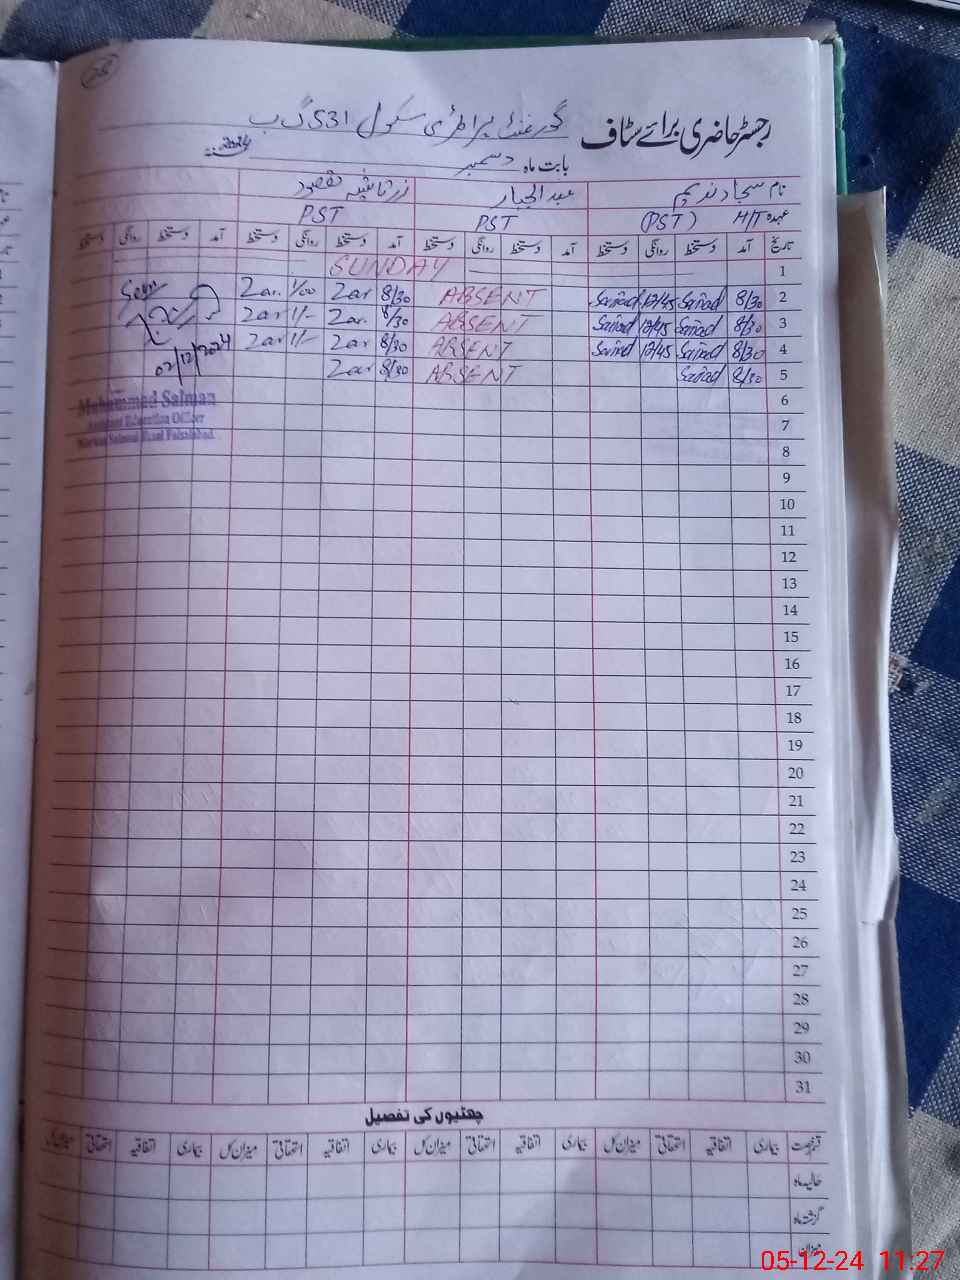 رجسٹر حاضری برائے سٹاف گورنمنٹ پرائمری سکول 531 گ ب
بابت ماہ دسمبر 2024
نام سجاد ندیم عبدالجبار مقصود
عہدہ H/T (PST) PST PST
تاریخ آمد دستخط روانگی دستخط آمد دستخط روانگی دستخط آمد دستخط روانگی دستخط آمد دستخط روانگی دستخط
1 SUNDAY
2 8/30 Sajjad 12/45 Sajjad ABSENT 8/30 Zar 1/00 Zar. Seen
3 8/30 Sajjad 12/45 Sajjad ABSENT 8/30 Zar. 1/- Zar
4 8/30 Sajjad 12/45 Sajjad ABSENT 8/30 Zar 1/- Zar 02/12/2024
5 8/30 Sajjad ABSENT 8/30 Zar
Muhammad Salman
Assistant Education Officer
Faisalabad
6
7
8
9
10
11
12
13
14
15
16
17
18
19
20
21
22
23
24
25
26
27
28
29
30
31
چھٹیوں کی تفصیل
بیماری اتفاقیہ استحقاقی میزان کل بیماری اتفاقیہ استحقاقی میزان کل بیماری اتفاقیہ استحقاقی میزان کل بیماری اتفاقیہ استحقاقی میزان کل
حالیہ ماہ
گزشتہ ماہ
میزان
05-12-24 11:27